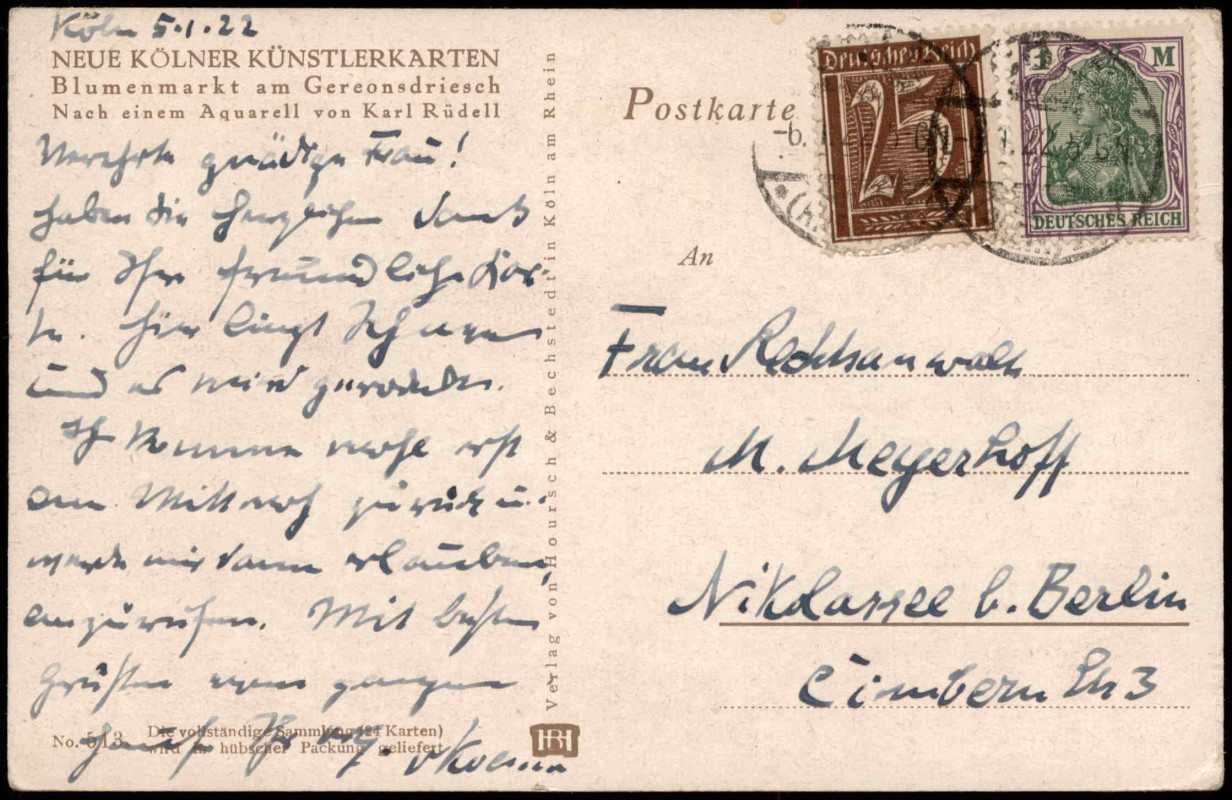 Köln 5.1.22
NEUE KÖLNER KÜNSTLERKARTEN
Blumenmarkt am Gereonsdriesch
Nach einem Aquarell von Karl Rüdell
Verehrte gnädige Frau!
Haben Sie herzlichen Dank
für Ihre freundliche Kar-
te. Hier liegt Schnee
und es wird gerodelt.
Ich komme wohl erst
am Mittwoch zurück u.
werde mir dann erlauben,
anzurufen. Mit besten
Grüßen vom ganzen
No. 513 Die vollständige Sammlung (24 Karten)
wird in hübscher Packung geliefert
Verlag von Hoursch & Bechstedt in Köln am Rhein
Postkarte
Deutsches Reich
75
1 M
DEUTSCHES REICH
An
Frau Rechtsanwalt
M. Meyerhoff
Nikolassee b. Berlin
Cimbernstr 3